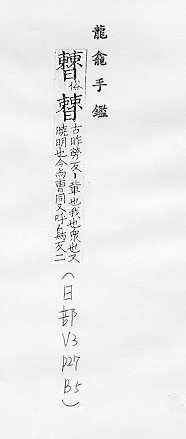 龍龕手鑑
𣍘俗𣍘古昨勞反丨輩也我也衆也又
曉明也今尚曹同又呼
反二
(日部
V3
P27
B5)